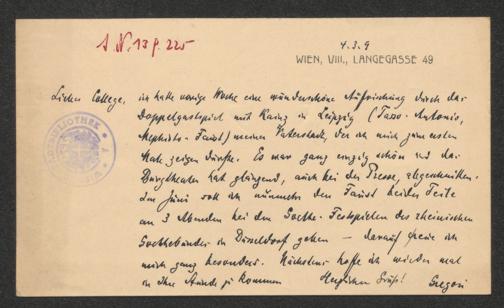 A.N. 13 p. 225
4.3.9
WIEN, VIII., LANGEGASSE 49
Lieber College, ich hatte vorige Woche eine wunderschöne Auffrischung durch das
Doppelgastspiel mit Kainz in Leipzig (Tasso-Antonio,
Mephisto-Faust) meiner Vaterstadt, der ich mich zum ersten
Male zeigen durfte. Es war ganz einzig schön und das
Burgtheater hat glänzend, auch bei der Presse, abgeschnitten.
Im Juni soll ich nunmehr den Faust beider Teile
an 3 Abenden bei den Goethe-Festspielen des rheinischen
Goethebundes in Düsseldorf geben — darauf freue ich
mich ganz besonders. Nächstens hoffe ich wieder mal
in Ihre Stunde zu kommen Herzlichen Gruß! Gregori
BIBLIOTHEK